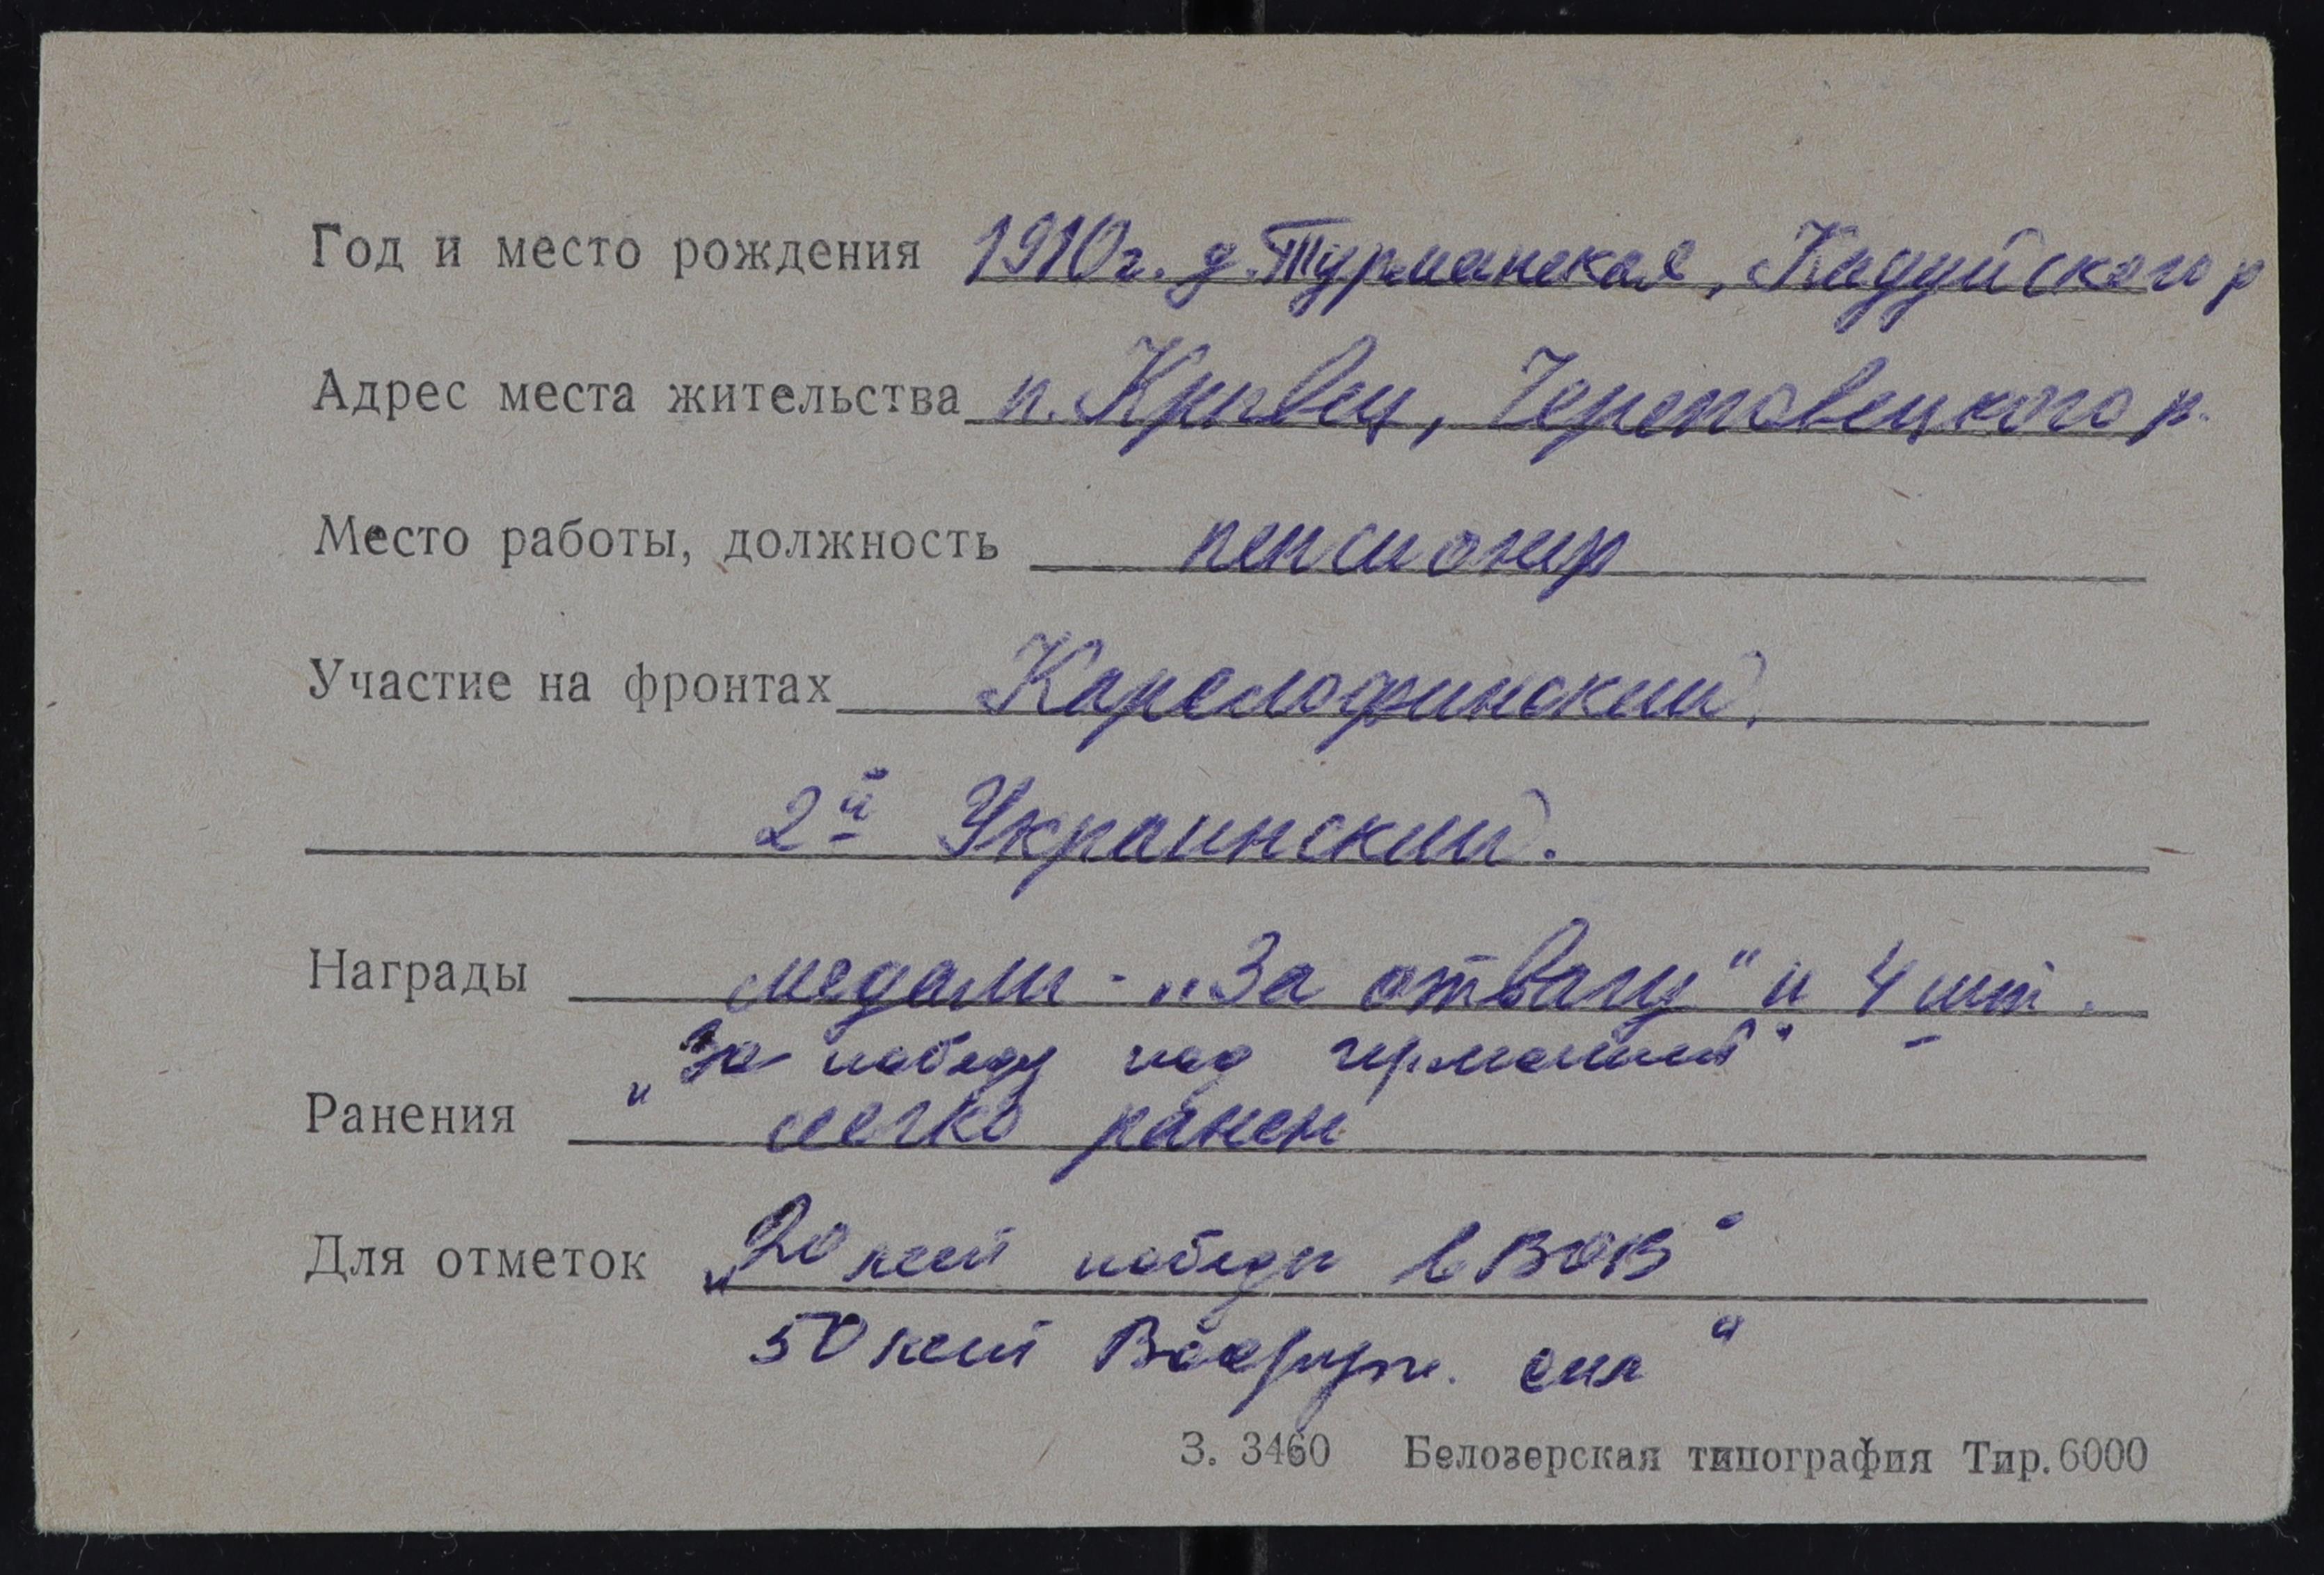 Год и место рождения 1910г. д. Турманская, Кадуйского р
Адрес места жительства п. Кривец, Череповецкого р.
Место работы, должность пенсионер
Участие на фронтах Карелофинский,
2й Украинский.
Награды медали - „За отвагу" и 4 шт.
„За победу над германией"
Ранения легко ранен
Для отметок „20 лет победы в ВОВ"
50 лет Вооруж. сил"
З. 3460 Белозерская типография Тир. 6000